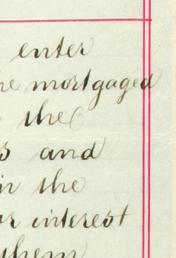 enter
mortgaged
the
and
in the
or interest
them